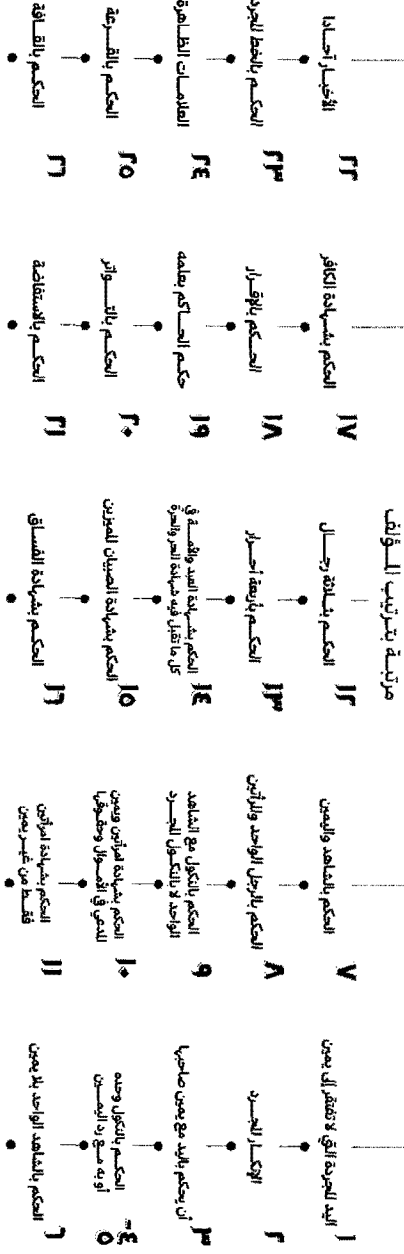 مرتبة بترتيب المؤلف
١ اليد المجردة التي لا تفتقر إلى يمين
٢ الإنكار المجرد
٣ أن يحكم باليد مع يمين صاحبها
٤-٥ الحكم بالنكول وحده
أو به مع رد اليمين
٦ الحكم بالشاهد الواحد بلا يمين
٧ الحكم بالشاهد واليمين
٨ الحكم بالرجل الواحد والمرأتين
٩ الحكم بالنكول مع الشاهد
الواحد لا بالنكول المجرد
١٠ الحكم بشهادة امرأتين ويمين
المدعي في الأموال وحقوقها
١١ الحكم بشهادة امرأتين
فقط من غير يمين
١٢ الحكم بثلاثة رجال
١٣ الحكم بأربعة أحرار
١٤ الحكم بشهادة العبد والأمة في
كل ما تقبل فيه شهادة الحر والحرة
١٥ الحكم بشهادة الصبيان المميزين
١٦ الحكم بشهادة الفساق
١٧ الحكم بشهادة الكافر
١٨ الحكم بالإقرار
١٩ حكم الحاكم بعلمه
٢٠ الحكم بالتواتر
٢١ الحكم بالاستفاضة
٢٢ الأخبار آحادا
٢٣ الحكم بالخط المجرد
٢٤ العلامات الظاهرة
٢٥ الحكم بالقرعة
٢٦ الحكم بالقافة